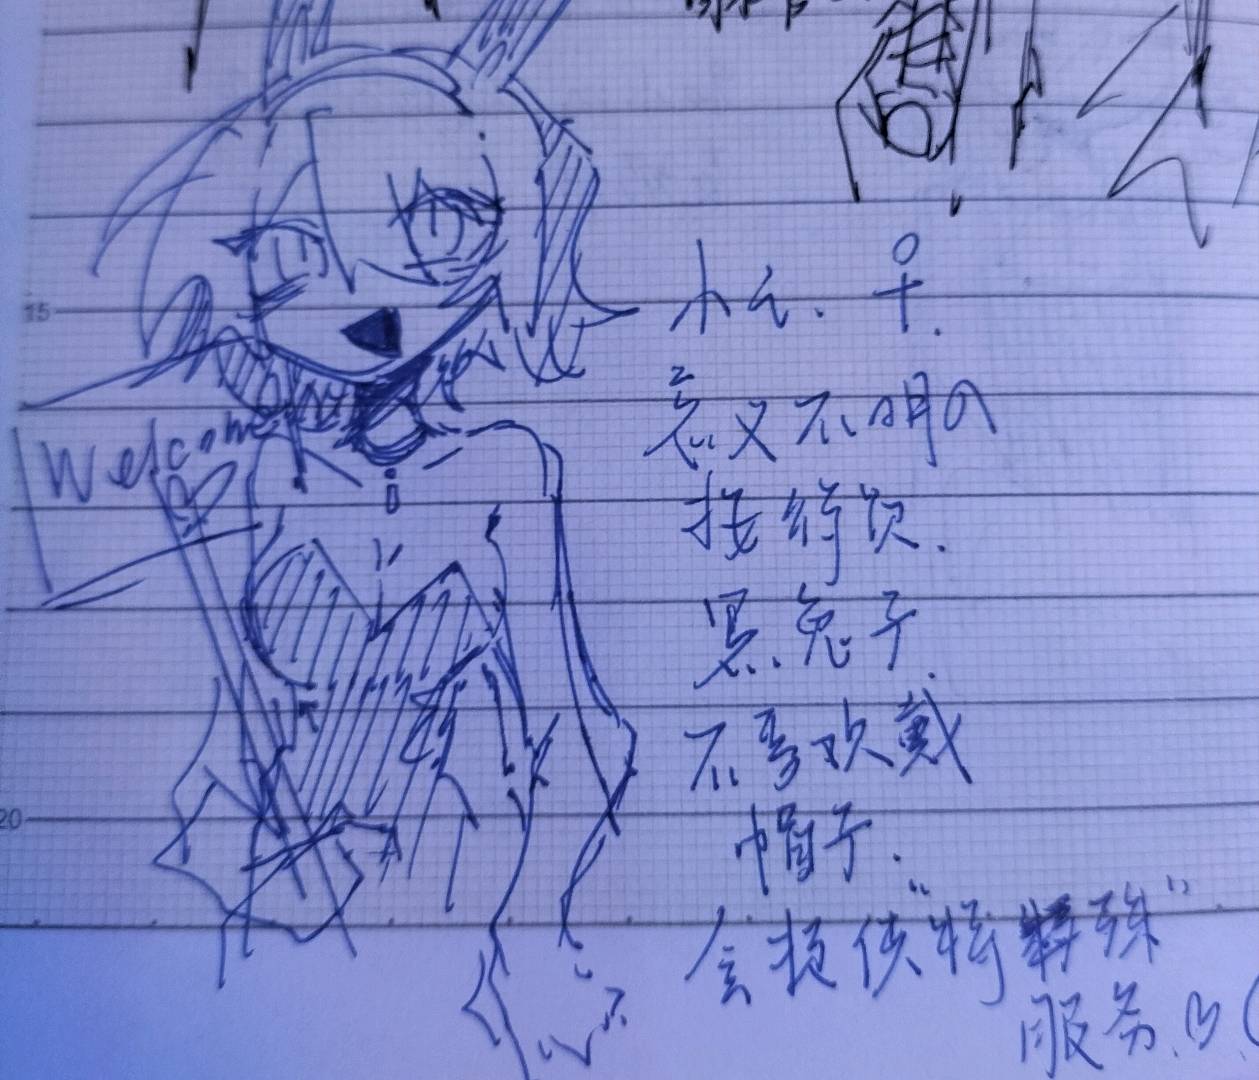 15
Welcome
♀.
意义不明の
黑兔子.
不喜欢戴
帽子.
20
会提供“特殊”
服务.